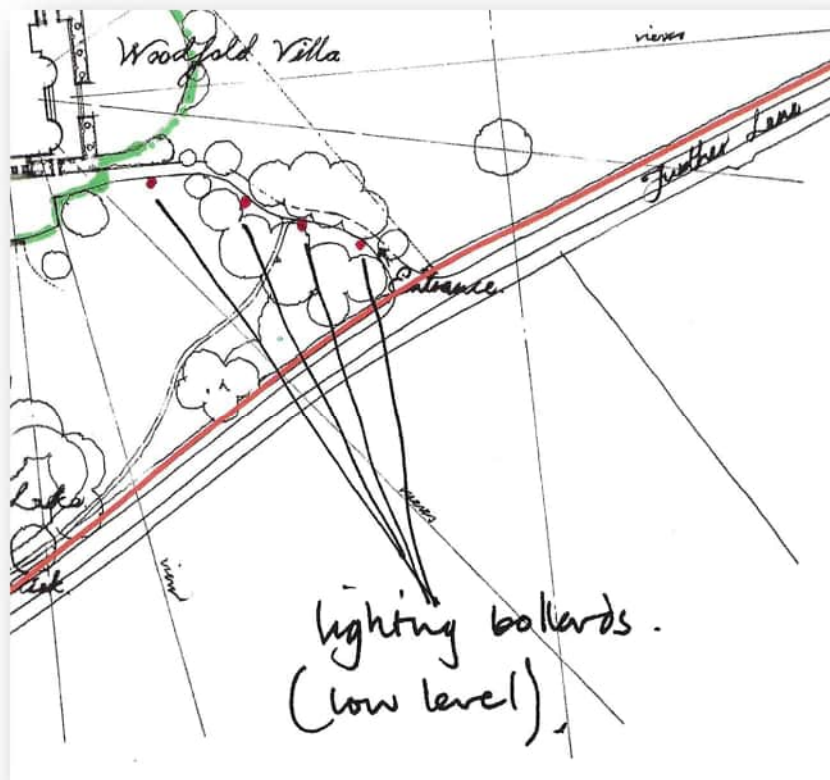 Woodfold Villa
views
Further Lane
Entrance.
views
Lake
view
lighting bollards.
(low level).